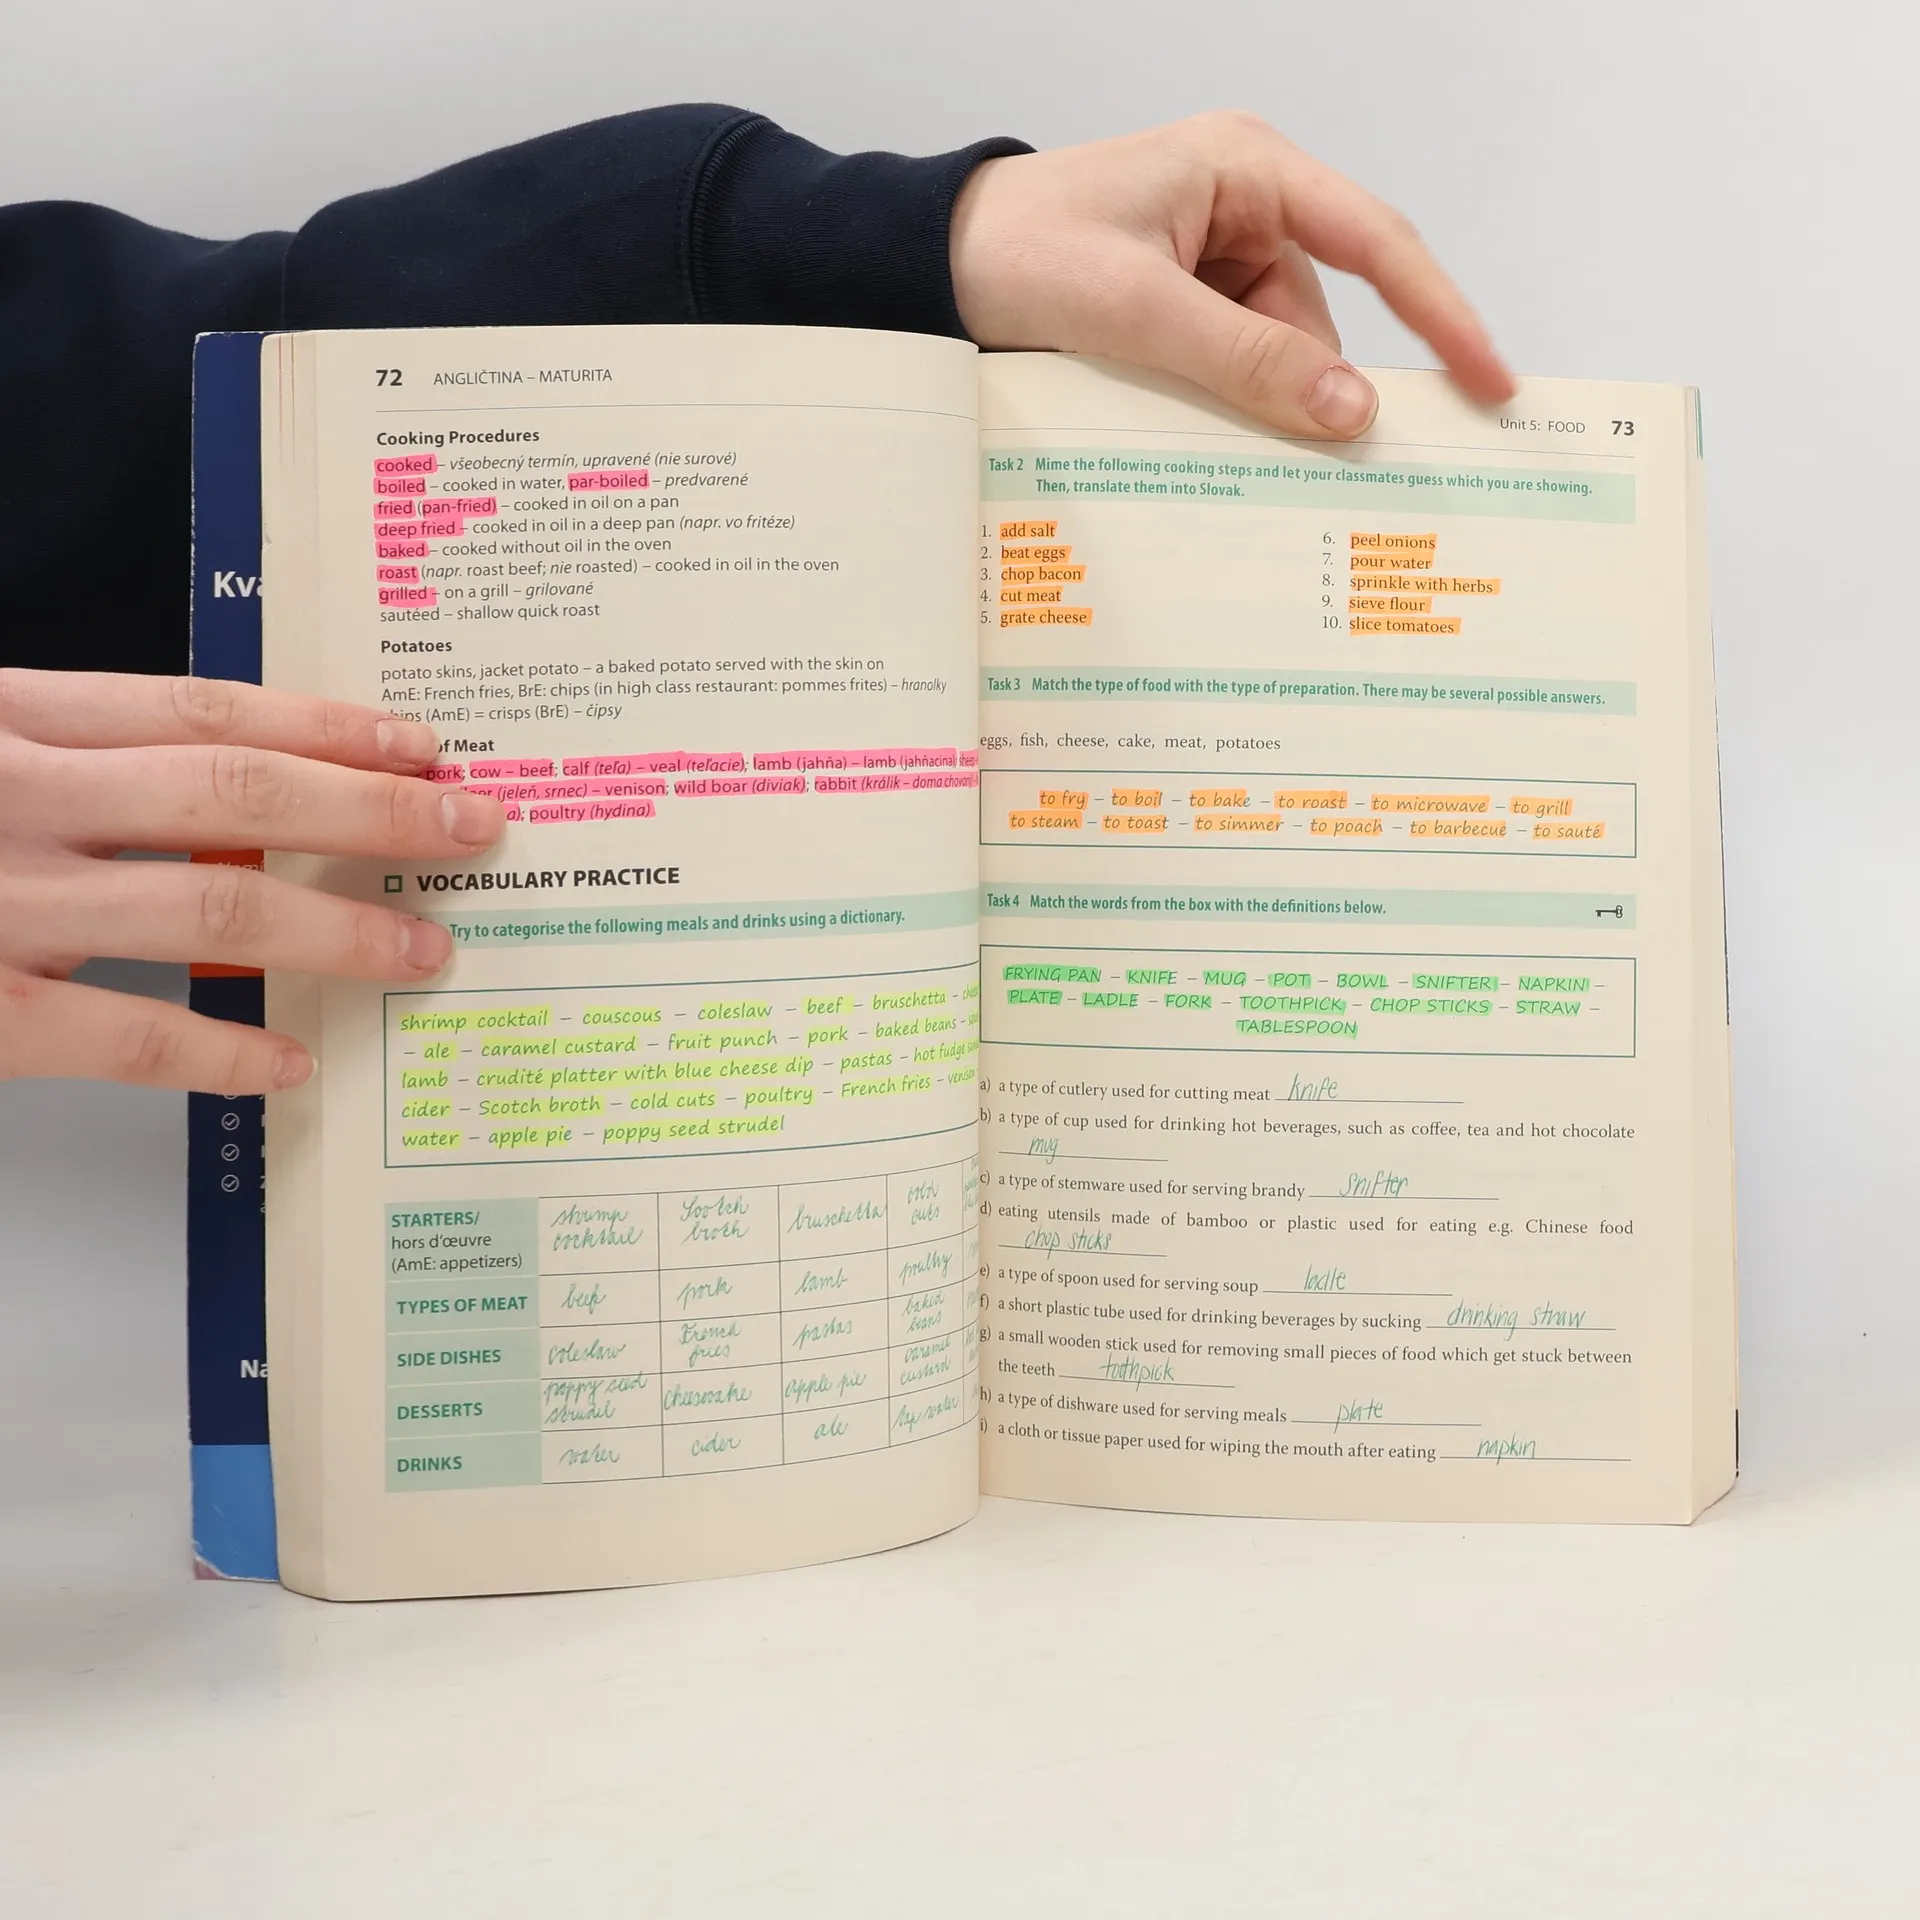 72 ANGLIČTINA – MATURITA
Cooking Procedures
cooked – všeobecný termín, upravené (nie surové)
boiled – cooked in water, par-boiled – predvarené
fried (pan-fried) – cooked in oil on a pan
deep fried – cooked in oil in a deep pan (napr. vo fritéze)
baked – cooked without oil in the oven
roast (napr. roast beef; nie roasted) – cooked in oil in the oven
grilled – on a grill – grilované
sautéed – shallow quick roast
Potatoes
potato skins, jacket potato – a baked potato served with the skin on
AmE: French fries, BrE: chips (in high class restaurant: pommes frites) – hranolky
(AmE) = crisps (BrE) – čipsy
of Meat
pork; cow – beef; calf (teľa) – veal (teľacie); lamb (jahňa) – lamb (jahňacina)
(jeleň, srnec) – venison; wild boar (diviak); rabbit (králik – doma chovaný)
poultry (hydina)
VOCABULARY PRACTICE
Try to categorise the following meals and drinks using a dictionary.
shrimp cocktail – couscous – coleslaw – beef – bruschetta –
– ale – caramel custard – fruit punch – pork – baked beans –
lamb – crudité platter with blue cheese dip – pastas – hot fudge
cider – Scotch broth – cold cuts – poultry – French fries – venison
water – apple pie – poppy seed strudel
STARTERS/
hors d'œuvre
(AmE: appetizers)
shrimp cocktail Scotch broth bruschetta cold cuts
TYPES OF MEAT beef pork lamb poultry
SIDE DISHES coleslaw French fries pastas baked beans
DESSERTS poppy seed strudel cheesecake apple pie caramel custard
DRINKS water cider ale tap water
Kva
Na
Unit 5: FOOD 73
Task 2 Mime the following cooking steps and let your classmates guess which you are showing.
Then, translate them into Slovak.
1. add salt
2. beat eggs
3. chop bacon
4. cut meat
5. grate cheese
6. peel onions
7. pour water
8. sprinkle with herbs
9. sieve flour
10. slice tomatoes
Task 3 Match the type of food with the type of preparation. There may be several possible answers.
eggs, fish, cheese, cake, meat, potatoes
to fry – to boil – to bake – to roast – to microwave – to grill
to steam – to toast – to simmer – to poach – to barbecue – to sauté
Task 4 Match the words from the box with the definitions below.
FRYING PAN – KNIFE – MUG – POT – BOWL – SNIFTER – NAPKIN –
PLATE – LADLE – FORK – TOOTHPICK – CHOP STICKS – STRAW –
TABLESPOON
a) a type of cutlery used for cutting meat knife
b) a type of cup used for drinking hot beverages, such as coffee, tea and hot chocolate
mug
c) a type of stemware used for serving brandy snifter
d) eating utensils made of bamboo or plastic used for eating e.g. Chinese food
chop sticks
e) a type of spoon used for serving soup ladle
f) a short plastic tube used for drinking beverages by sucking drinking straw
g) a small wooden stick used for removing small pieces of food which get stuck between
the teeth toothpick
h) a type of dishware used for serving meals plate
i) a cloth or tissue paper used for wiping the mouth after eating napkin